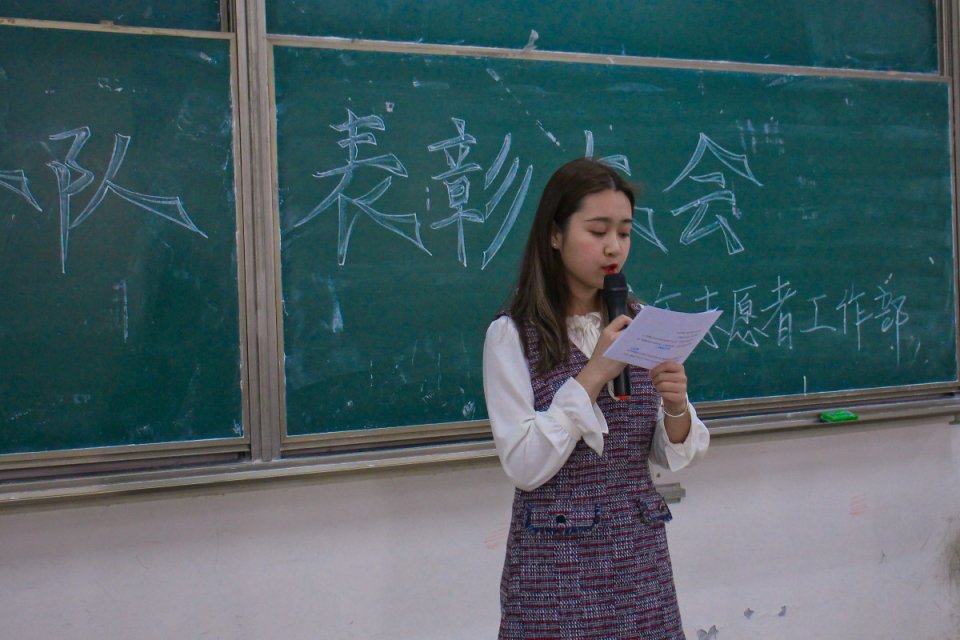 队 表彰大会
志愿者工作部